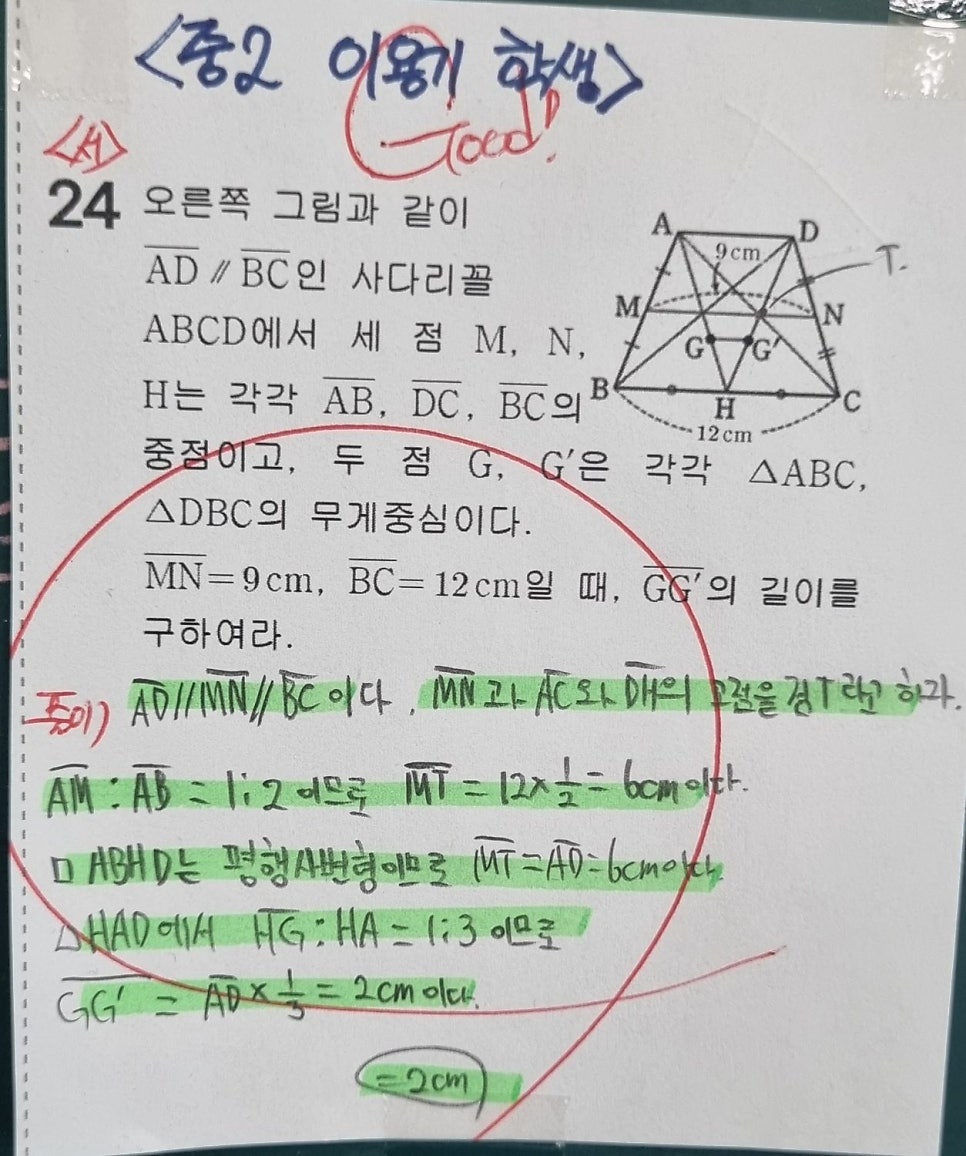 <중2 이용기 학생>
Good!
<서>
24 오른쪽 그림과 같이
AD∥BC인 사다리꼴
ABCD에서 세 점 M, N,
H는 각각 AB, DC, BC의
중점이고, 두 점 G, G′은 각각 △ABC,
△DBC의 무게중심이다.
MN=9cm, BC=12cm일 때, GG′의 길이를
구하여라.
A D
9cm T.
M N
G G′
B H C
12cm
풀이) AD//MN//BC 이다. MN과 AC와 DH의 교점을 점T라고 하자.
AM : AB = 1:2 이므로 MT = 12×1/2 = 6cm이다.
□ABHD는 평행사변형이므로 MT=AD=6cm이다.
△HAD에서 HG : HA = 1:3 이므로
GG' = AD × 1/3 = 2cm이다.
=2cm